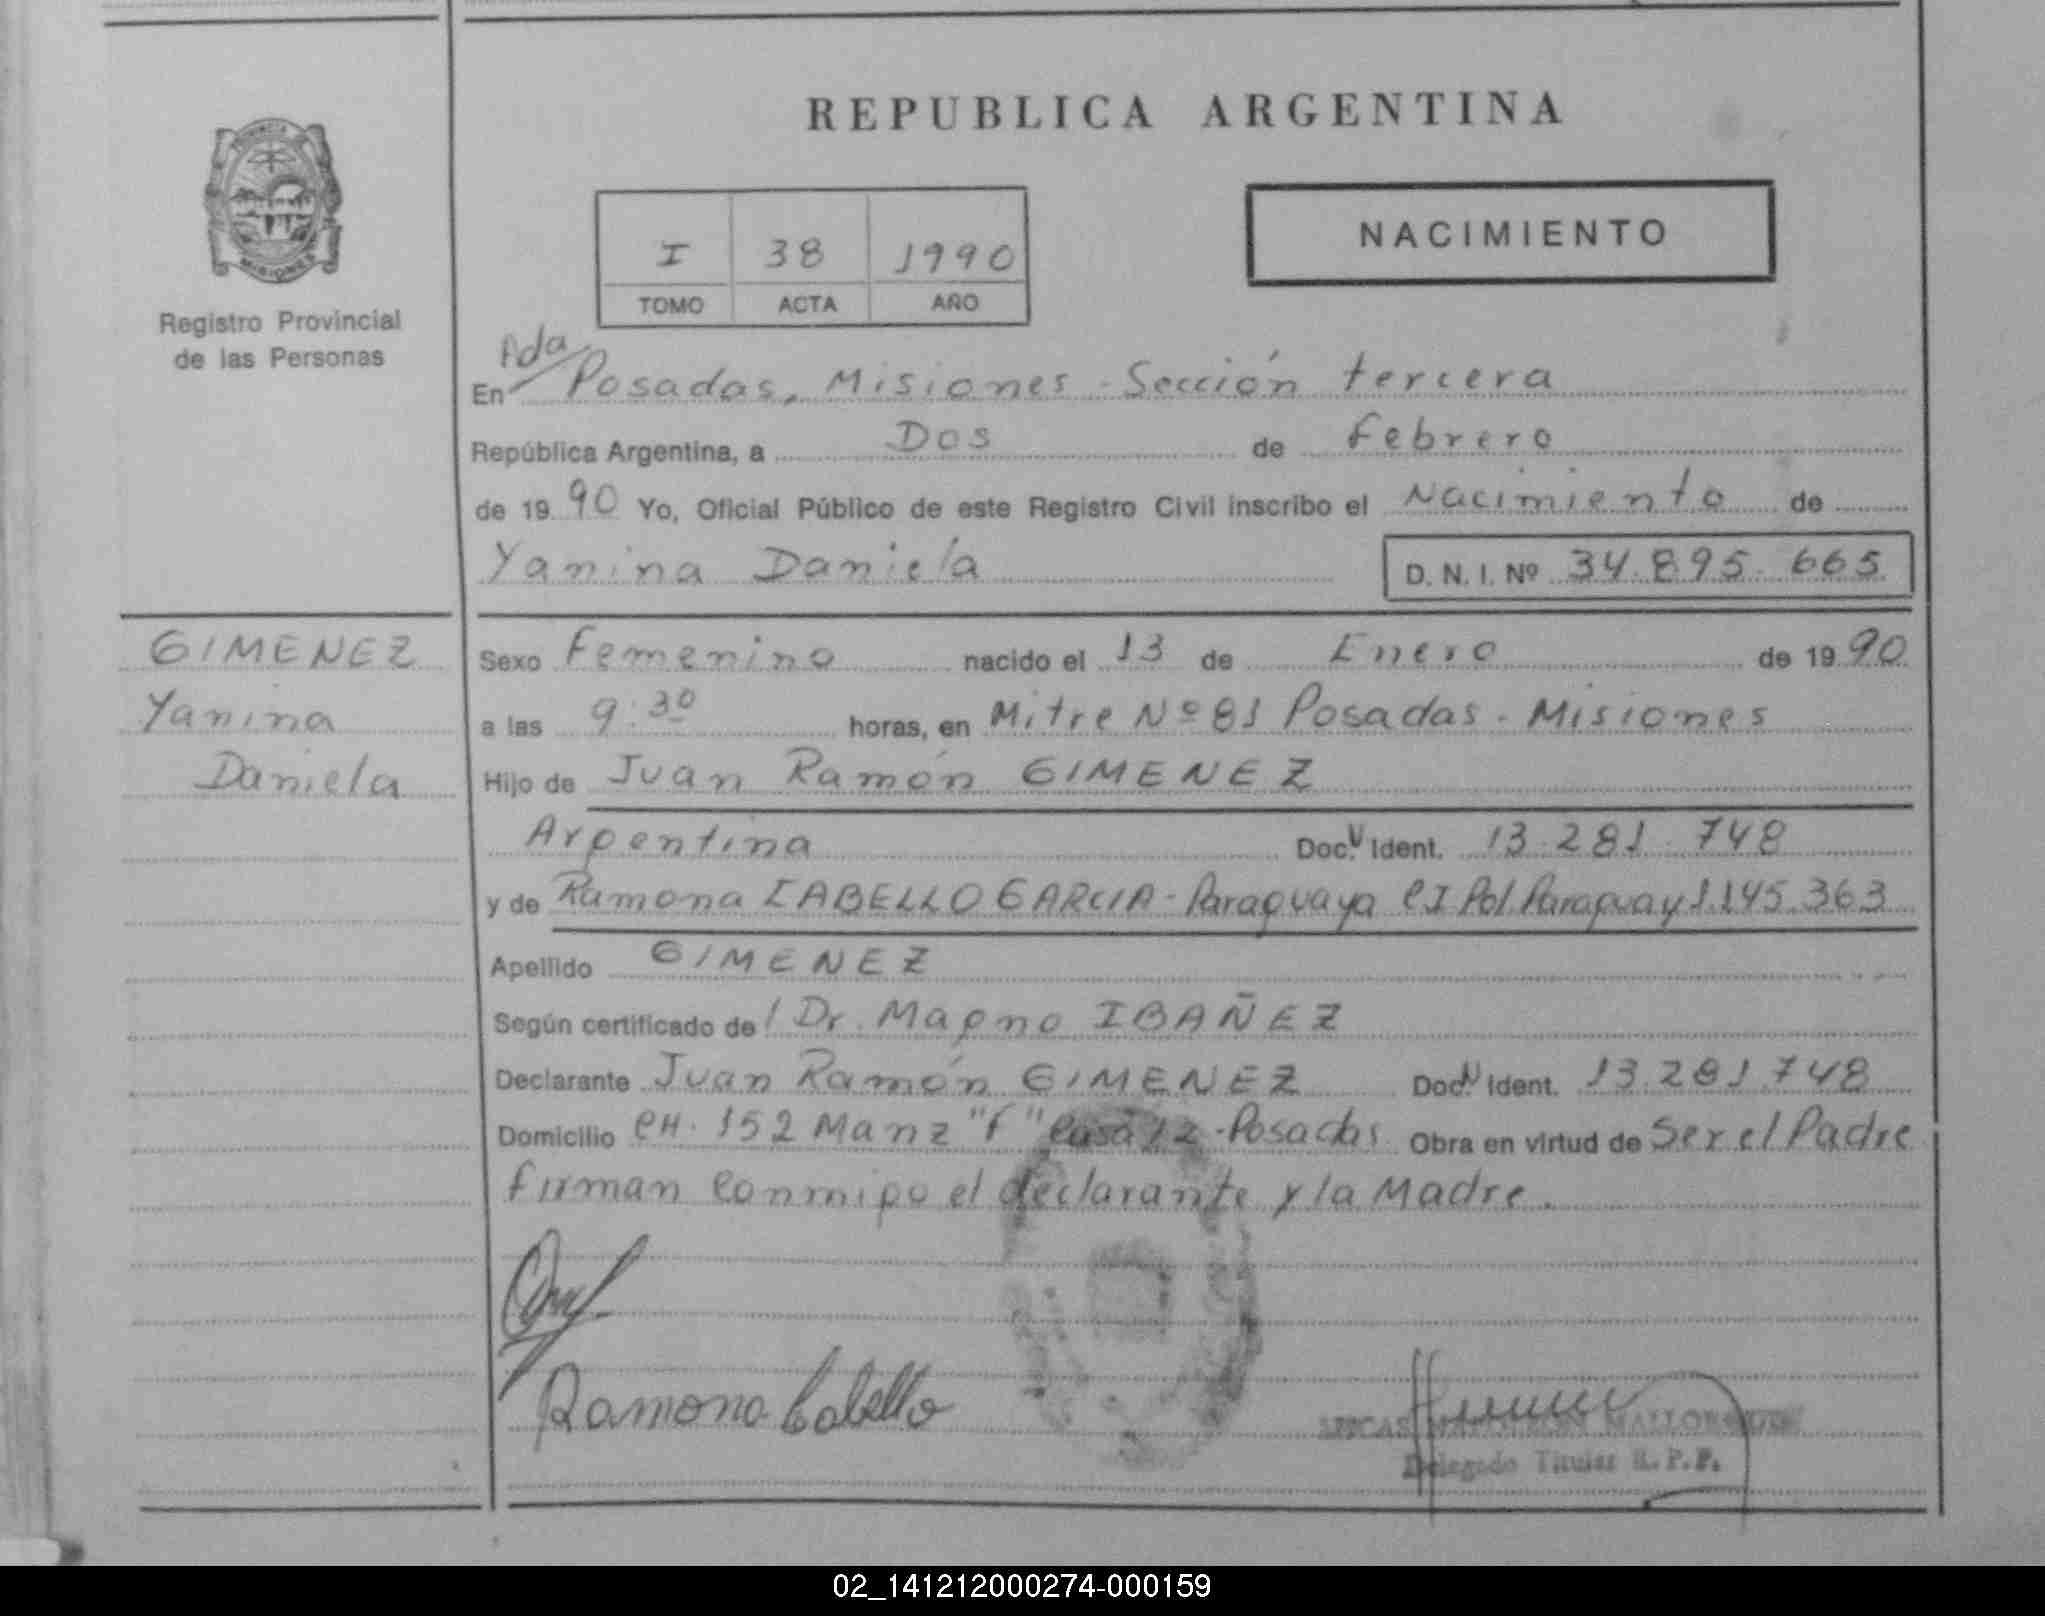 REPUBLICA ARGENTINA
NACIMIENTO
I 38 1990
TOMO ACTA AÑO
MISIONES
Registro Provincial
de las Personas
Pda.
En Posadas, Misiones - Sección tercera
República Argentina, a Dos de Febrero
de 19 90 Yo, Oficial Público de este Registro Civil inscribo el Nacimiento de
Yanina Daniela D. N. I. Nº 34.895.665
GIMENEZ
Yanina
Daniela
Sexo Femenino nacido el 13 de Enero de 19 90
a las 9:30 horas, en Mitre Nº 81 Posadas - Misiones
Hijo de Juan Ramón GIMENEZ
Argentina Doc. Ident. 13.281.748
y de Ramona CABELLO GARCIA - Paraguaya CI Pol. Paraguay 1.145.363
Apellido GIMENEZ
Según certificado de Dr. Magno IBAÑEZ
Declarante Juan Ramón GIMENEZ Doc. Ident. 13.281.748
Domicilio CH. 152 Manz "F" Casa 12 - Posadas Obra en virtud de Ser el Padre
firman Conmigo el declarante y la Madre.
Ramona Cabello
Delegado Titular R.P.P.
02_141212000274-000159